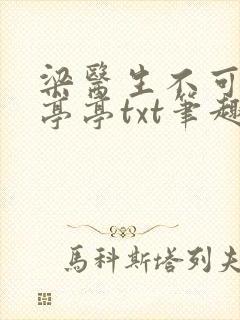 梁醫生不可
亭亭txt筆趣
馬科斯塔列夫